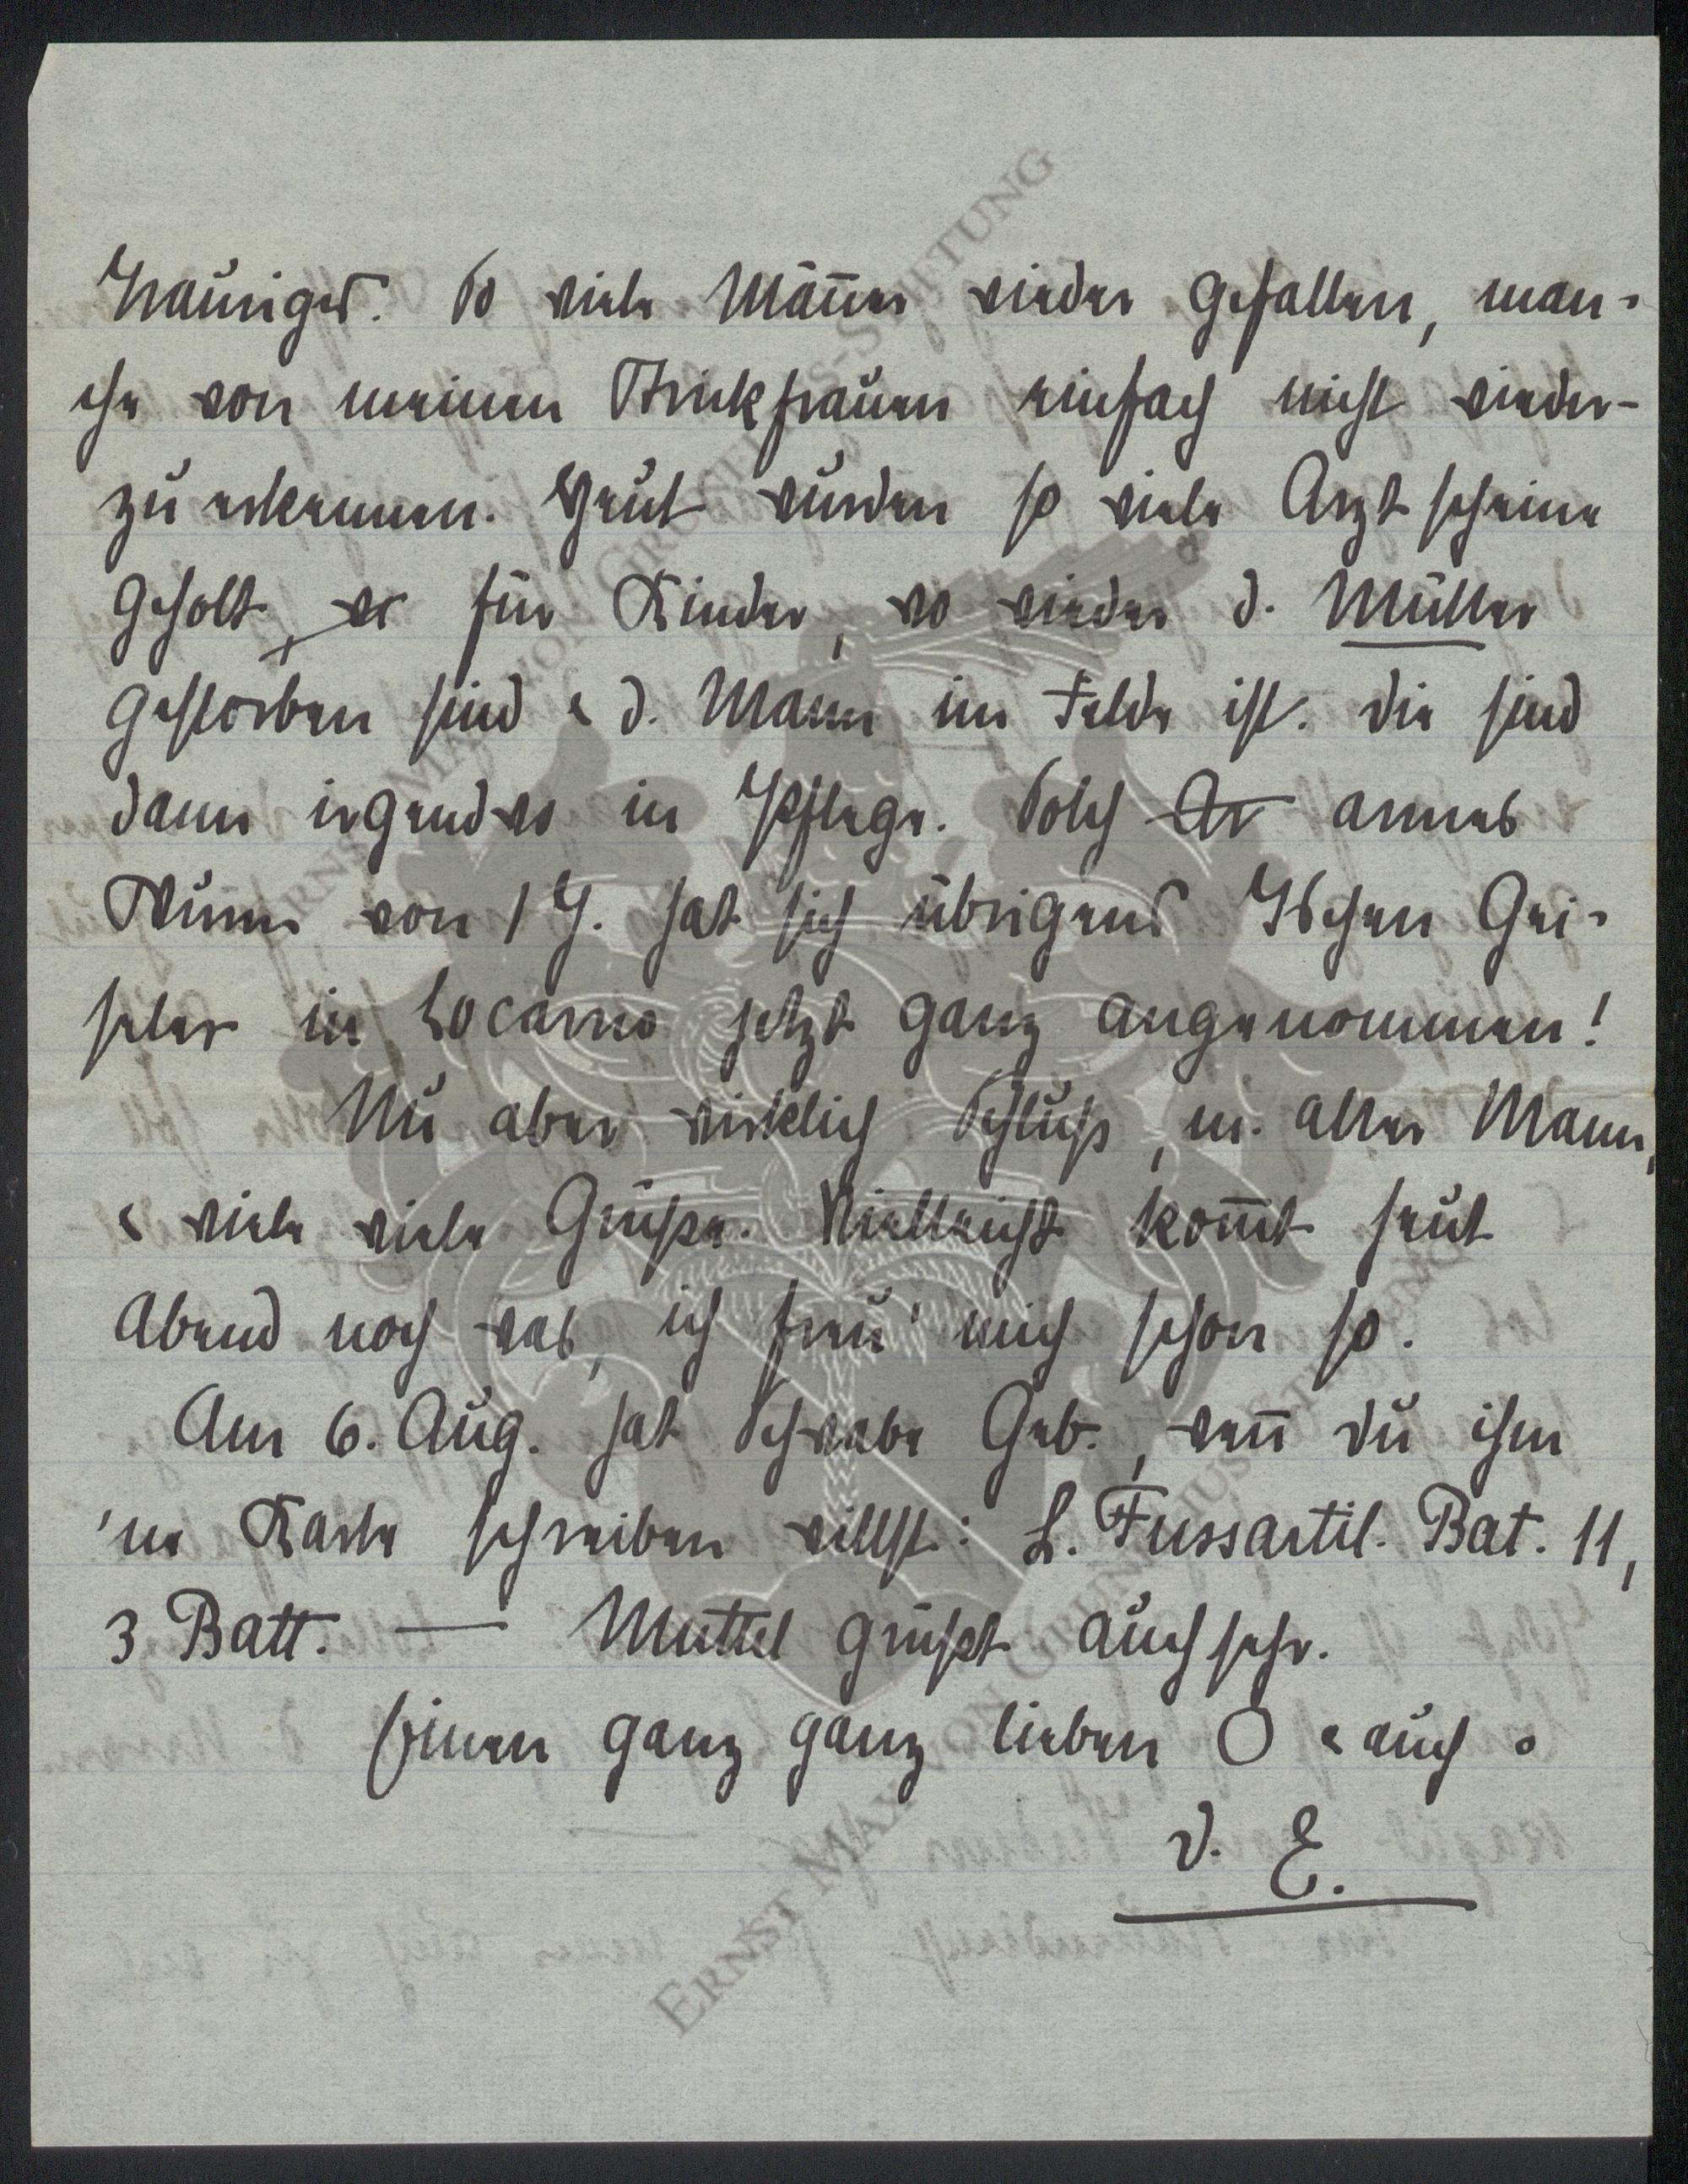 Trauriges. So viele Männer wieder gefallen, man-
che von meinen Strickfrauen einfach nicht wieder-
zuerkennen. Heut wurden so viele Arztscheine
geholt, für Kinder, wo wieder d. Mütter
gestorben sind u d. Mann im Felde ist. Die sind
dann irgendwo in Pflege. Solch armes
Wurm von 1 J. hat sich übrigens Gei-
seler in Locarno jetzt ganz angenommen!
Nu aber wirklich Schluß, m. alter Mann,
u viele viele Grüße. Vielleicht kom̅t heut
Abend noch was, ich freu' mich schon so.
Am 6. Aug. hat Schwabe Geb., wen̅ du ihm
'ne Karte schreiben willst: L. Fussartil. Bat. 11,
3 Batt. — Muttel grüßt auch sehr.
Einen ganz ganz lieben O u auch o
D. E.
ERNST MAX VON GRUNELIUS-STIFTUNG
ERNST MAX VON GRUNELIUS-STIFTUNG